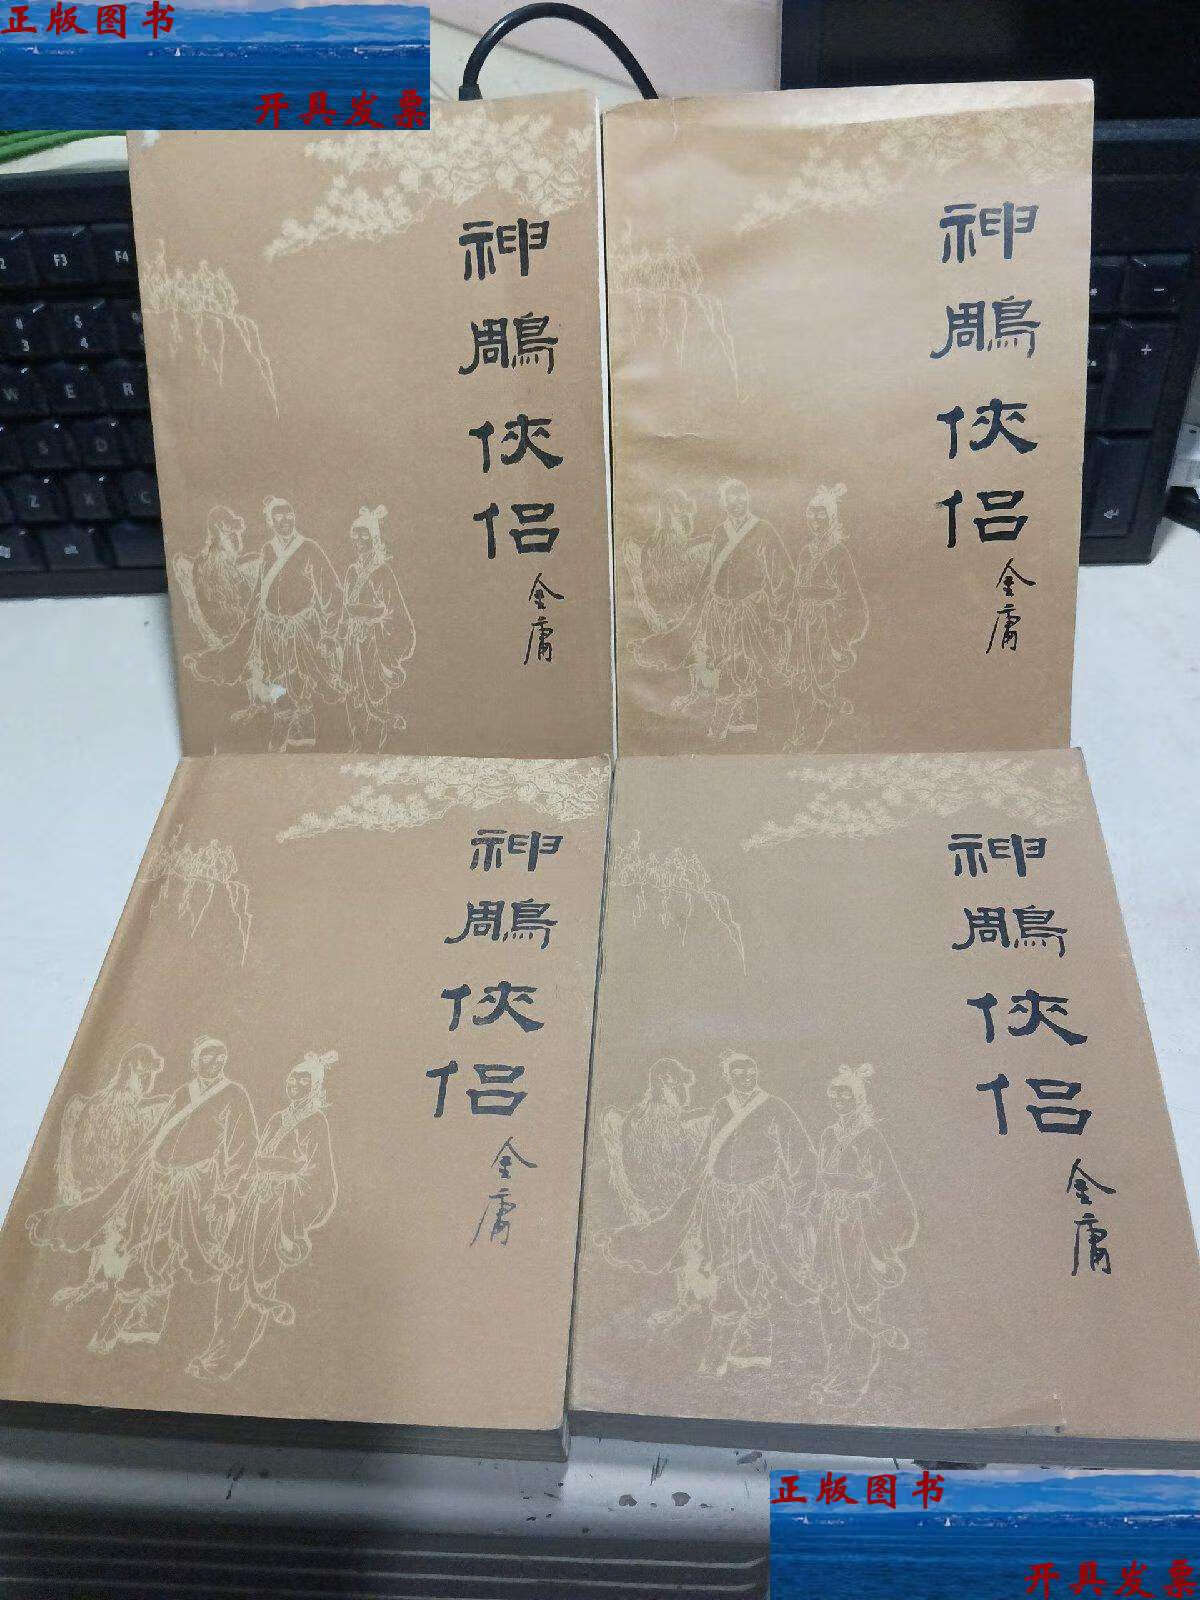 正版图书
开具发票
神鵰俠侣
金庸
神鵰俠侣
金庸
神鵰俠侣
金庸
神鵰俠侣
金庸
F3
F4
$
4
3
W
E
R
S
D
Z
X
C
+
正版图书
开具发票